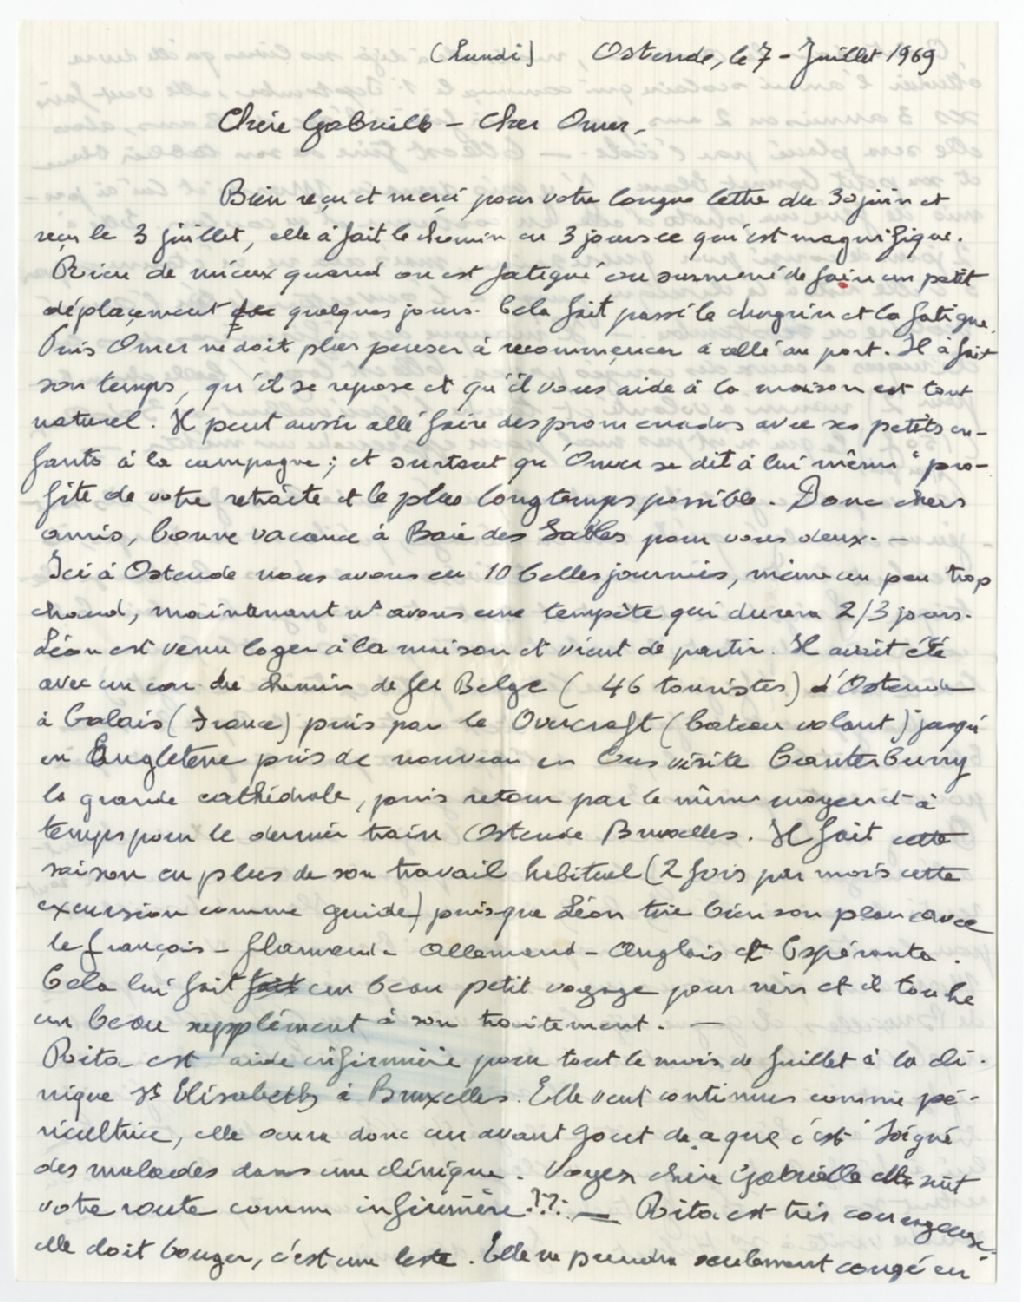 (Lundi) Ostende, le 7 - Juillet 1969
Chère Gabrielle - Cher Omer,
Bien reçu et merci pour votre longue lettre du 30 juin et
reçu le 3 juillet, elle à fait le chemin en 3 jours ce qui est magnifique.
Rien de mieux quand on est fatigué ou surmené de faire un petit
déplacement de quelques jours. Cela fait passé le chagrin et la fatigue.
Puis Omer ne doit plus penser à recommencer à allé au port. Il à fait
son temps, qu'il se repose et qu'il vous aide à la maison est tout
naturel. Il peut aussi allé faire des promenades avec ses petits en-
fants à la campagne ; et surtout qu'Omer se dit à lui même "pro-
fite de votre retraite et le plus longtemps possible. Donc chers
amis, bonne vacance à Baie des Sables pour vous deux. -
Ici à Ostende nous avons eu 10 belles journées, même un peu trop
chaud, maintenant ns avons une tempête qui durera 2/3 jours.
Léon est venu loger à la maison et vient de partir. Il avait été
avec un car du chemin de fer Belge ( 46 touristes) d'Ostende
à Calais ( France) puis par le Overcraft ( bateau volant) jusqu'
en Angleterre puis de nouveau en bus visite Canterburry
la grande cathédrale, puis retour par le même moyen et à
temps pour le dernier train Ostende Bruxelles. Il fait cette
saison en plus de son travail habituel (2 fois par mois cette
excursion comme guide) puisque Léon tire bien son plan avec
le français - flamand - allemand - anglais et Espéranto.
Cela lui fait un beau petit voyage pour rien et il touche
un beau supplément à son traitement. -
Rita est aide infirmière pour tout le mois de Juillet à la cli-
nique St Elisabeth à Bruxelles. Elle veut continuer comme pé-
ricultrice, elle aura donc un avant gout de ce que c'est soigné
des malades dans une clinique. Voyez chère Gabrielle elle suit
votre route comme infirmière ??. - Rita est très courageuse
elle doit bouger, c'est une leste. Elle ne prendra seulement congé en